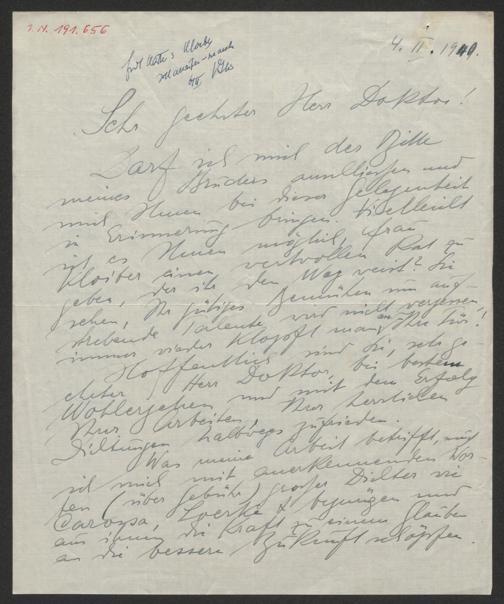 I.N. 191.656
4. II. 1940.
Sehr geehrter Herr Doktor!
Darf ich mich der Bitte
meines Bruders anschließen und
mich Ihnen bei dieser Gelegenheit
in Erinnerung bringen. Vielleicht
ist es Ihnen möglich, Frau
Kloiber einen wertvollen Rat zu
geben, der ihr den Weg weist? Sie
sehen, Ihr gütiges Bemühen um auf-
strebende Talente wird nicht vergessen,
immer wieder klopft man an Ihre Tür!
Hoffentlich sind Sie, sehr ge-
ehrter Herr Doktor, bei bestem
Wohlergehen und mit dem Erfolg
Ihrer Arbeiten, Ihrer herrlichen
Dichtungen halbwegs zufrieden.
Was meine Arbeit betrifft, muß
ich mich mit anerkennenden Wor-
ten (über Gebühr) großer Dichter wie
Carossa, Loerke begnügen und
aus ihnen die Kraft zu einem Glauben
an die bessere Zukunft schöpfen.